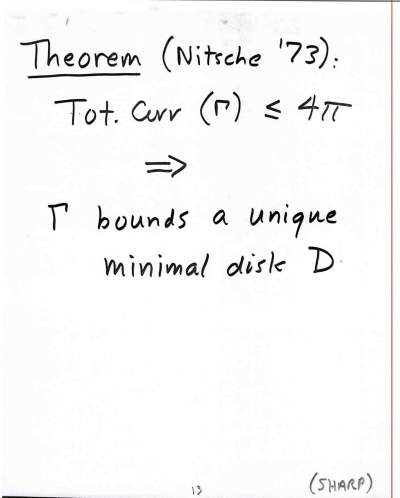 Theorem (Nitsche '73):
Tot. Curv (Γ) ≤ 4π
⇒
Γ bounds a unique
minimal disk D.
13
(SHARP)